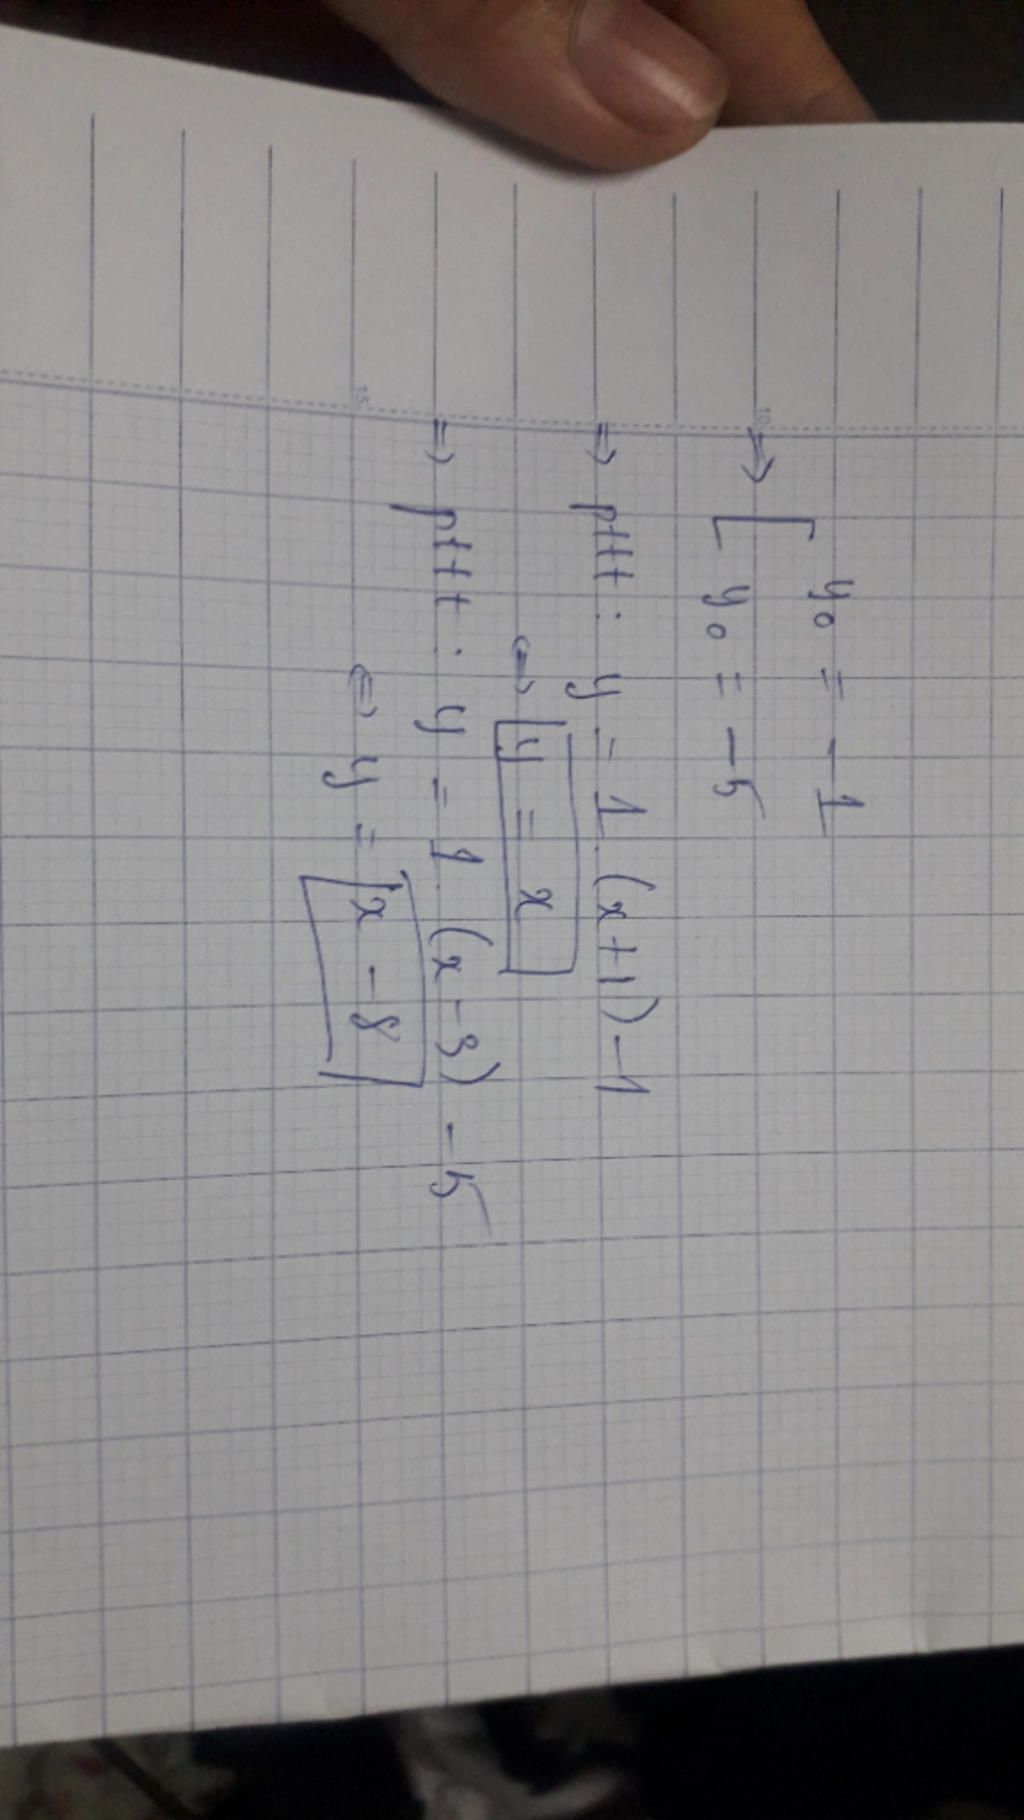 y₀ = -1
⇒ [ y₀ = -5
⇒ pttt: y = 1.(x+1) -1
⇔ y = x
⇒ pttt: y = 1.(x-3) -5
⇔ y = x - 8
10
15